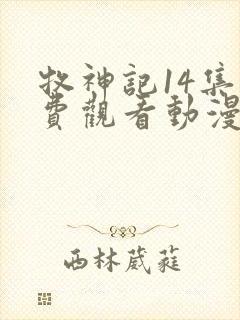 牧神記14集
費觀看動漫
西林葳蕤